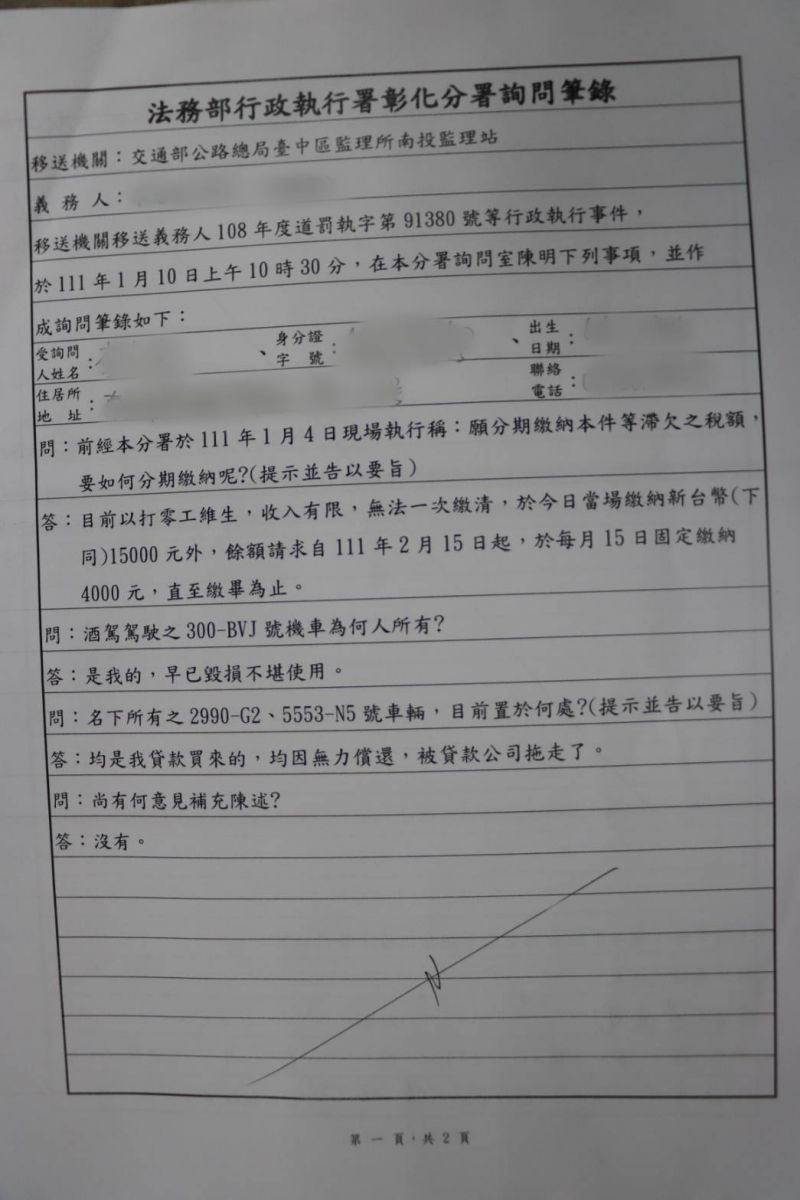 法務部行政執行署彰化分署詢問筆錄
移送機關：交通部公路總局臺中區監理所南投監理站
義務人：
移送機關移送義務人108年度道罰執字第91380號等行政執行事件，
於111年1月10日上午10時30分，在本分署詢問室陳明下列事項，並作
成詢問筆錄如下：
受詢問人姓名：、身分證字號：、出生日期：
住居所地址：聯絡電話：
問：前經本分署於111年1月4日現場執行稱：願分期繳納本件等滯欠之稅額，
要如何分期繳納呢?(提示並告以要旨)
答：目前以打零工維生，收入有限，無法一次繳清，於今日當場繳納新台幣(下
同)15000元外，餘額請求自111年2月15日起，於每月15日固定繳納
4000元，直至繳畢為止。
問：酒駕駕駛之300-BVJ號機車為何人所有?
答：是我的，早已毀損不堪使用。
問：名下所有之2990-G2、5553-N5號車輛，目前置於何處?(提示並告以要旨)
答：均是我貸款買來的，均因無力償還，被貸款公司拖走了。
問：尚有何意見補充陳述?
答：沒有。
第一頁，共2頁